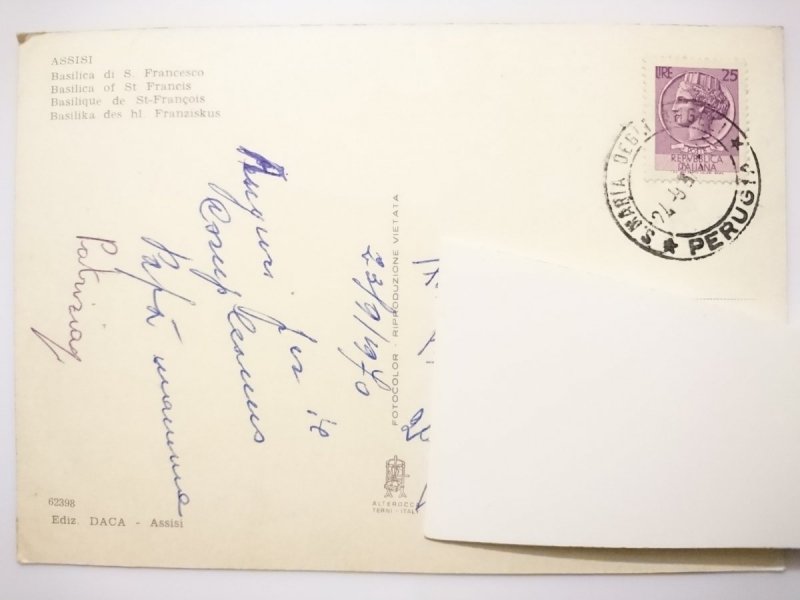 ASSISI
Basilica di S. Francesco
Basilica of St Francis
Basilique de St-François
Basilika des hl. Franziskus
LIRE 25
REPVBBLICA
ITALIANA
S. MARIA DEGLI
PERUGIA
Auguri per il
Compleanno
Papà mamma
Patrizia
23/9/1970
FOTOCOLOR - RIPRODUZIONE VIETATA
ALTEROCCA
TERNI - ITAL
62398
Ediz. DACA - Assisi